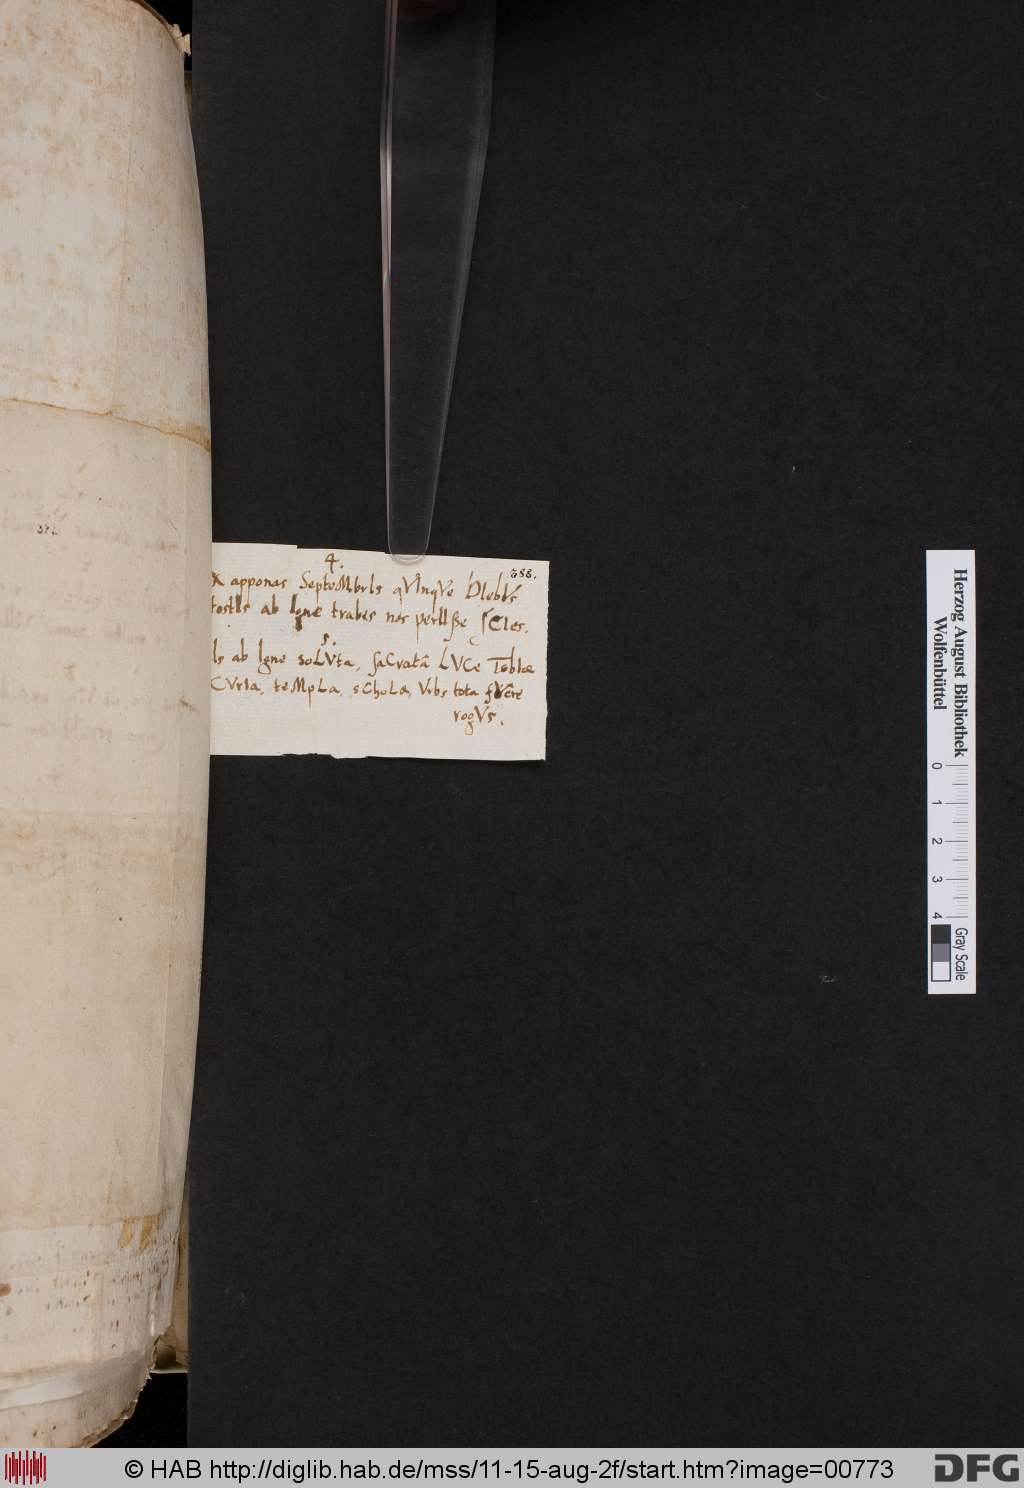 4.
388.
X apponas SepteMbrIs qVInqVe DIebVs
tostIs ab Igne trabes nos perIIsse sCIes.
5.
Is ab Igne soLVta, saCratâ LVCe TobIæ
CVrIa, teMpLa, sChoLæ, Vrbs tota fVere
rogVs.
Herzog August Bibliothek
Wolfenbüttel
0 1 2 3 4
Gray Scale
© HAB http://diglib.hab.de/mss/11-15-aug-2f/start.htm?image=00773
DFG